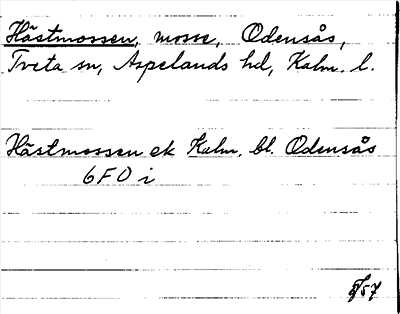 Hästmossen, mosse, Odensås,
Tveta sn, Aspelands hd, Kalm. l.
Hästmossen ek Kalm. bl. Odensås
6F0 i